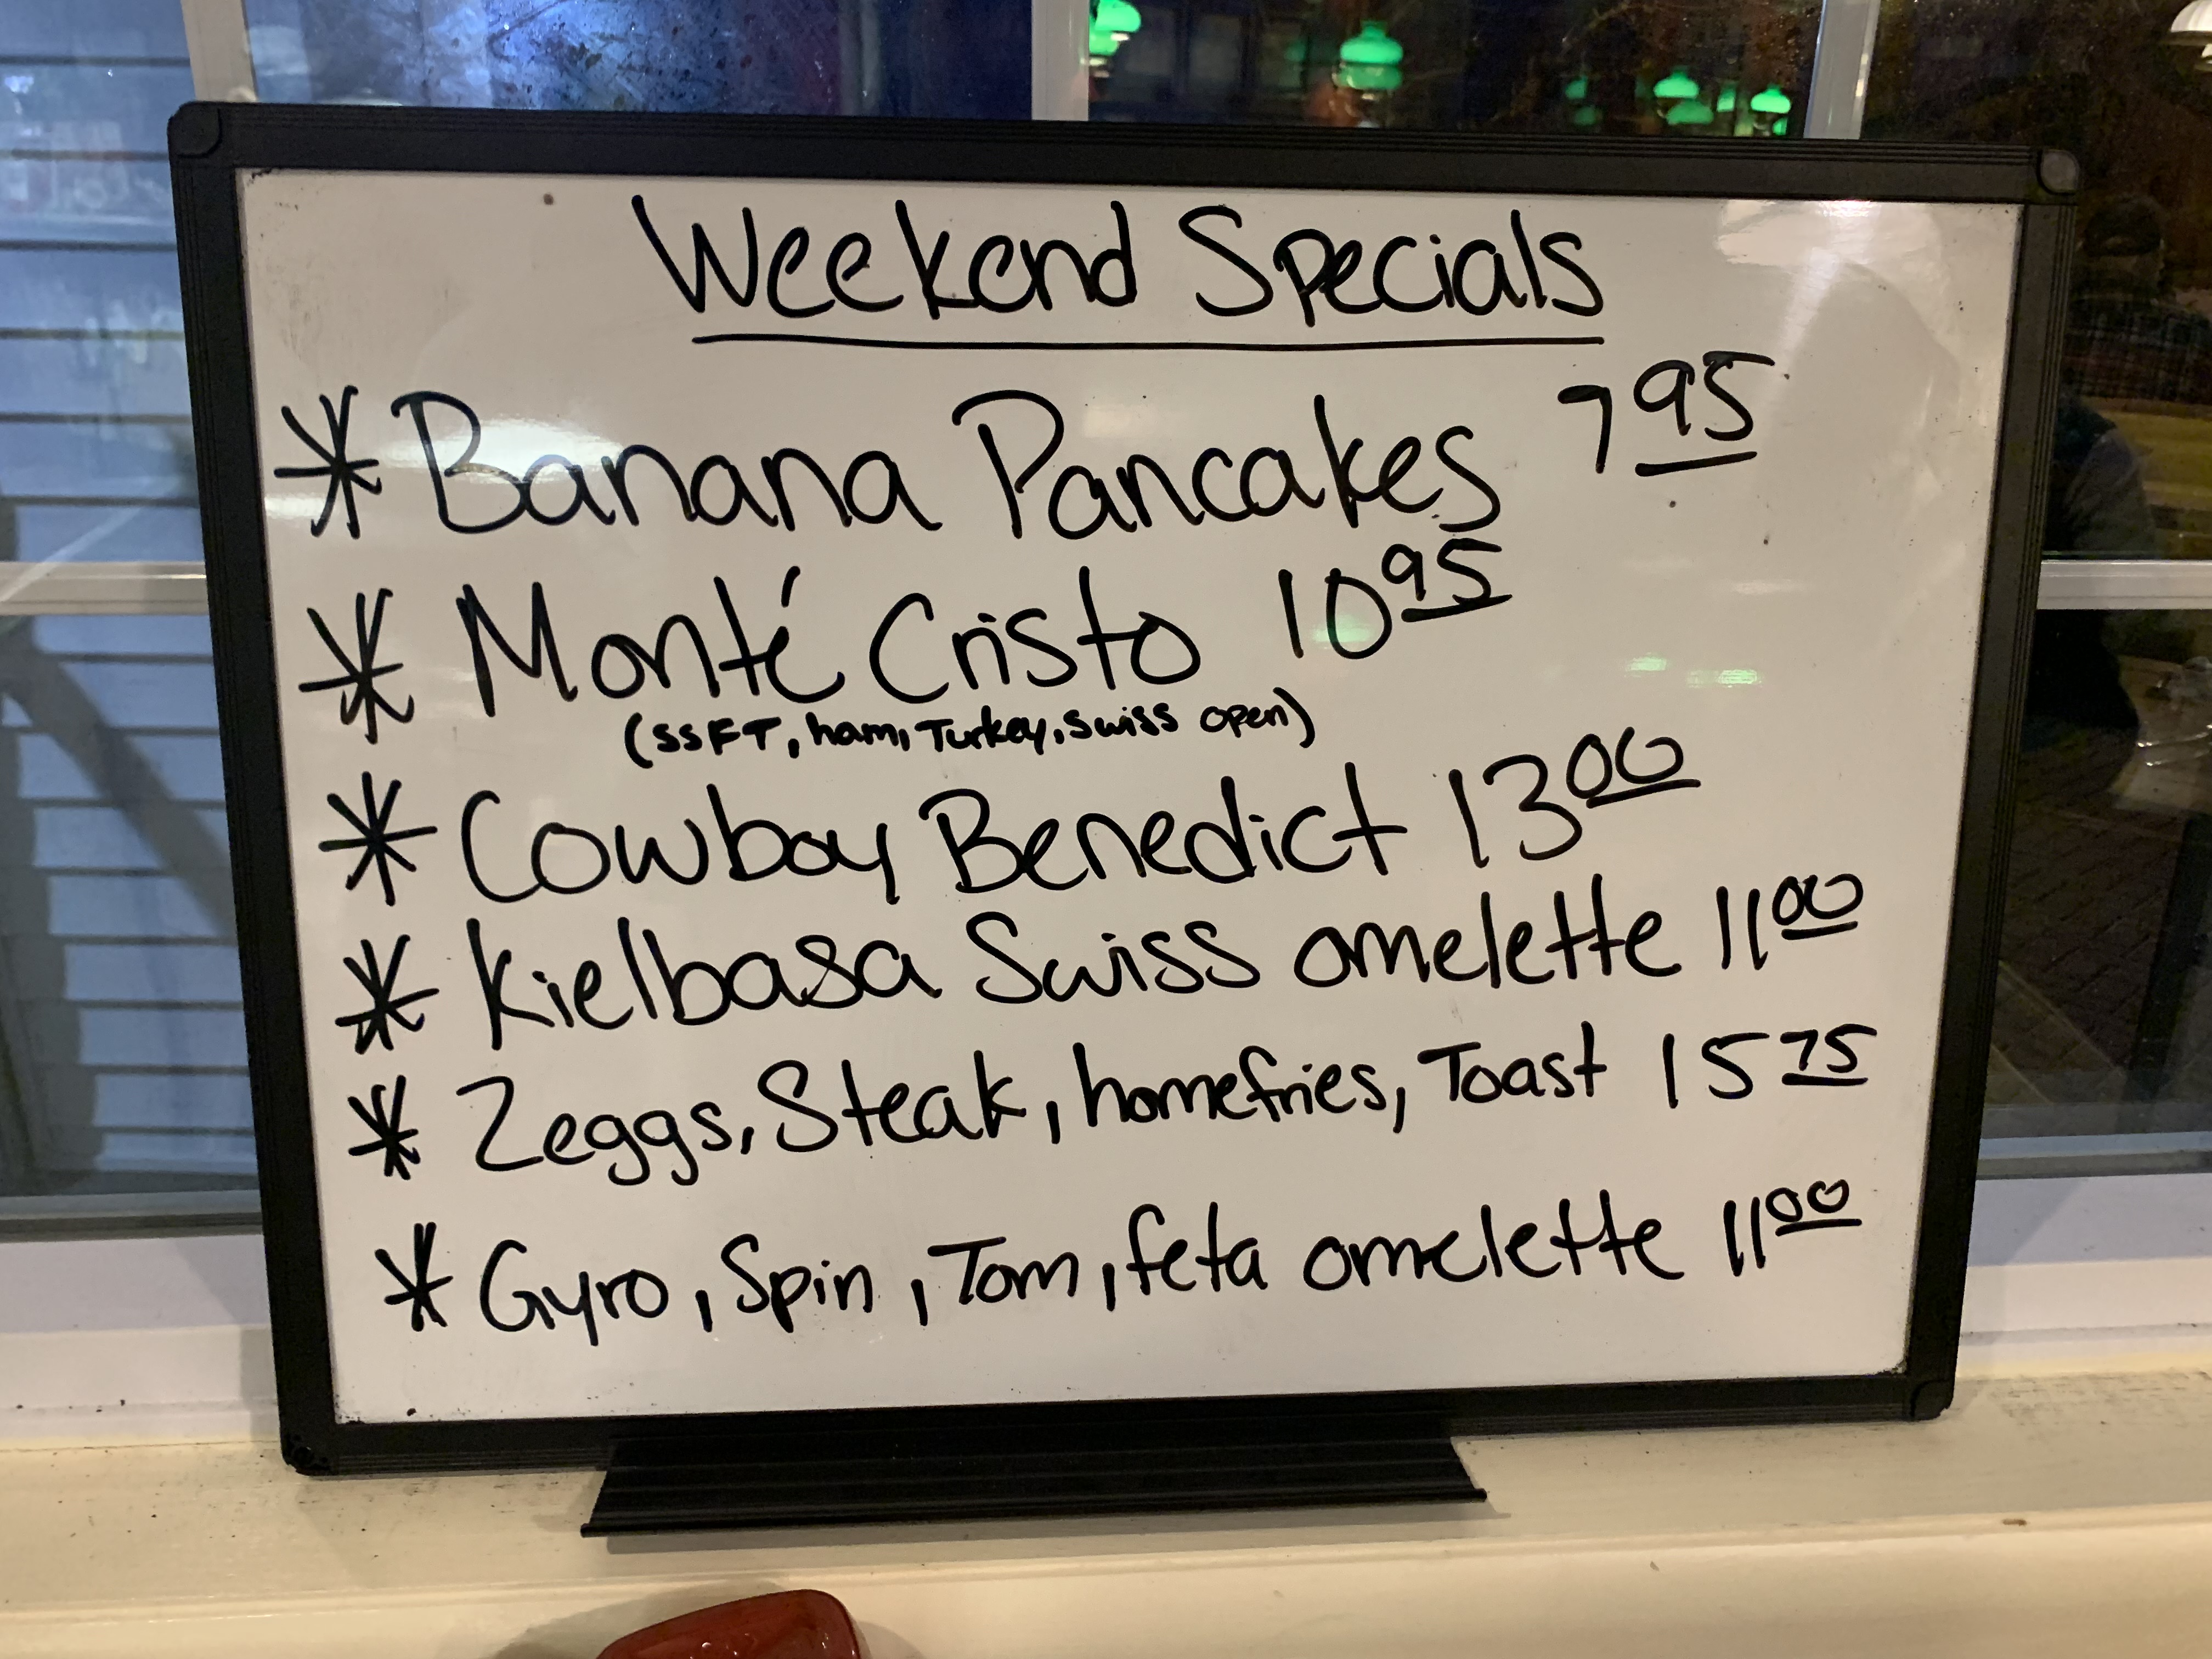 Weekend Specials
* Banana Pancakes 7 95
* Monté Cristo 10 95
(SSFT, ham, Turkey, Swiss open)
* Cowboy Benedict 13 00
* Kielbasa Swiss omelette 11 00
* 2eggs, Steak, homefries, Toast 15 75
* Gyro, Spin, Tom, feta omelette 11 00